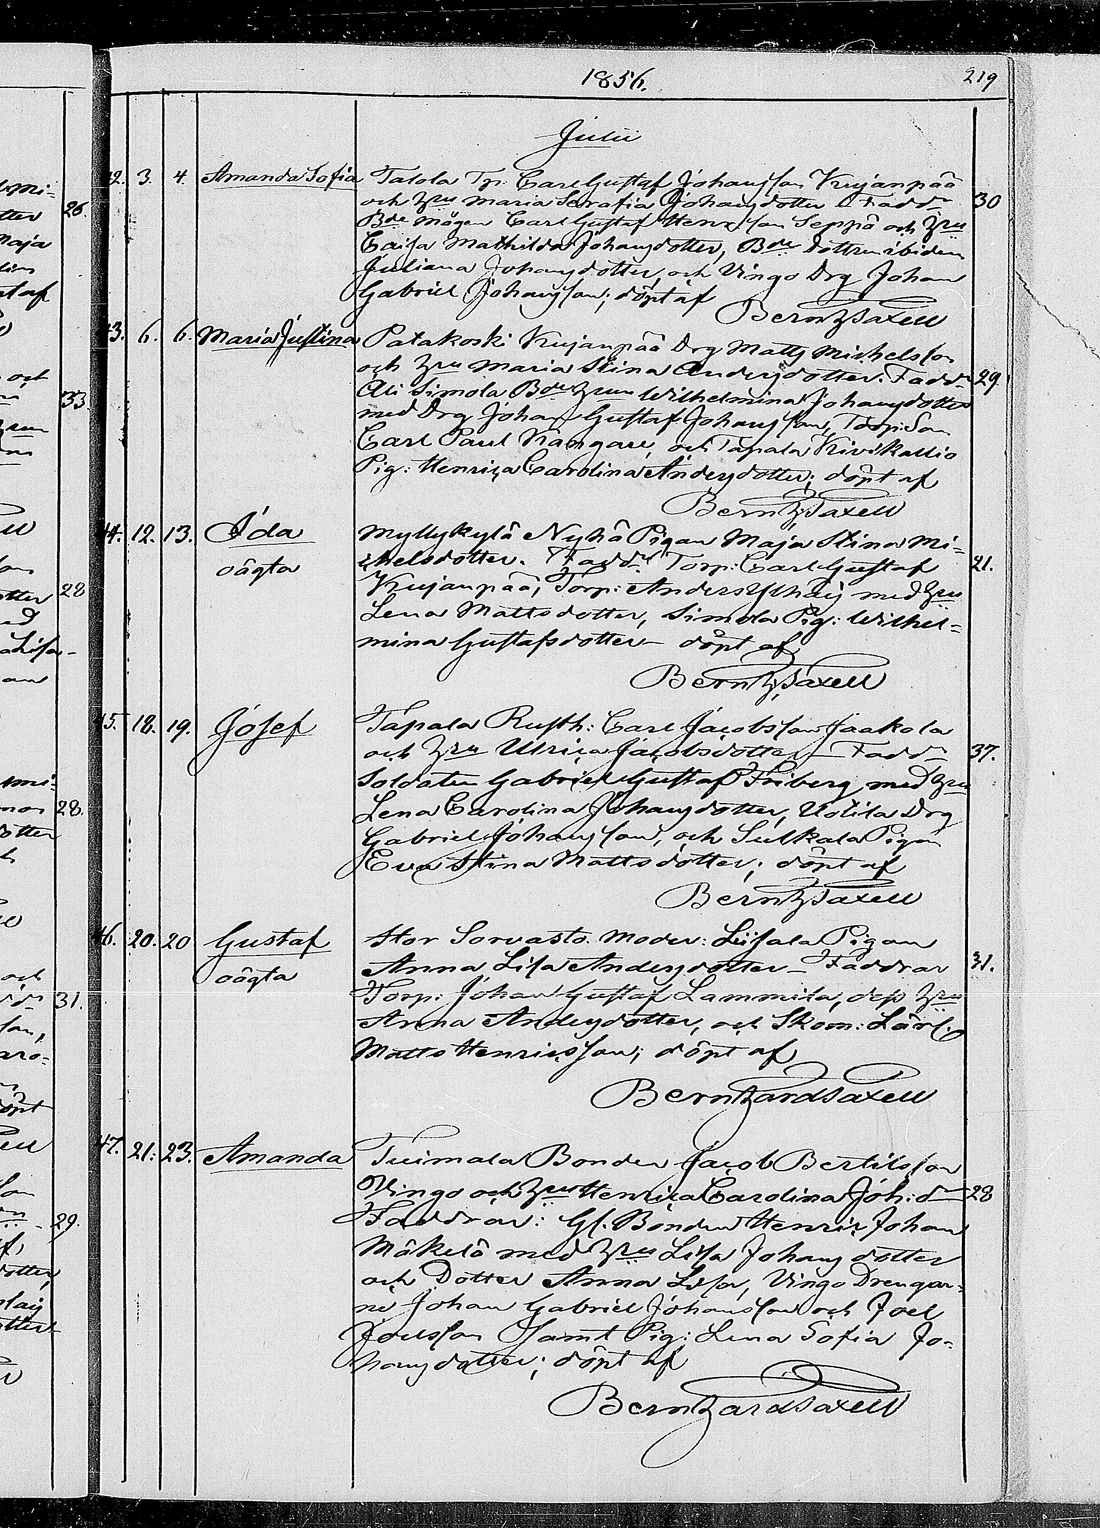 1856.
219
Julii
42. 3. 4. Amanda Sofia Talola Tp. Carl Gustaf Johansson Kujanpää
och Hru Maria Serafia Johansdotter Faddr 30
Bde mågen Carl Gustaf Henrsson Seppä och Hru
Caisa Mathilda Johansdotter, Bde dottren ibidem
Juliana Johansdotter, och Vingo Drg Johan
Gabriel Johansson; döpt af
Berntz Saxell
43. 6. 6. Maria Justina Patakoski Kujanpää Drg Matts Michelsson
och Hru Maria Stina Andersdotter. Faddr 29
Ali Simola Bde Hrun Wilhelmina Johansdotter
med Drg Johan Gustaf Johansson, Torp: Son
Carl Paul Kangare, och Tapala Kivikallio
Pig: Henrica Carolina Andersdotter; döpt af
Berntz Saxell
44. 12. 13. Ida Myllykylä Nyhä Pigan Maja Stina Mi-
oägta chelsdotter. Faddr Torp: Carl Gustaf 21.
Kujanpää, Torp: Anders Ylhäij med Hru
Lena Mattsdotter, Simola Pig: Wilhel-
mina Gustafsdotter – döpt af
Berntz Saxell
45. 18. 19. Josef Tapala Rusth: Carl Jacobsson Jaakola
och Hru Ulrica Jacobsdotter – Faddr 37.
Soldaten Gabriel Gustaf Friberg med Hru
Lena Carolina Johansdotter, Uotila Drg
Gabriel Johansson, och Sulkala Pigan
Eva Stina Mattsdotter; döpt af
Berntz Saxell
46. 20. 20 Gustaf Stor Sorvasto. Moder: Liisala Pigan
oägta Anna Lisa Andersdotter – Faddrar 31.
Torp: Johan Gustaf Lammila, dess Hru
Anna Andersdotter, och Skom: Lärl.
Matts Henricsson; döpt af
Berntzard Saxell
47. 21. 23. Amanda Tuimala Bonden Jacob Bertilsson
Vingo och Hru Henrica Carolina Joh: dr 28
Faddrar: Gl. Bonden Henric Johan
Mäkelä med Hru Lisa Johansdotter
och Dotter Anna Lisa, Vingo Drengar-
ne Johan Gabriel Johansson och Joel
Joelsson Samt Pig: Lena Sofia Jo-
hansdotter; döpt af
Berntzard Saxell